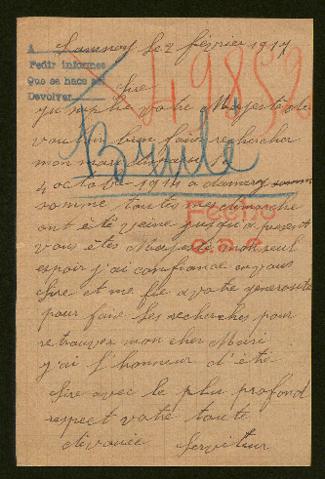 Lannoy le 2 février 1917
A
Pedir informes
Que se hace así
Devolver
49852
Sire
je supplie votre Majesté de
vouloir bien faire rechercher
mon mari disparu le
Brulé
4 octobre 1914 a damery somme
somme toutes mes démarche
ont été veine jusqu'a present
Fecho
vous êtes Majesté mon seul
espoir j'ai comfiance en vous
Sire et me fie a votre generosité
pour faire les recherches pour
retrouver mon cher Mari
j'ai l'honneur d'être
Sire avec le plus profond
respect votre toute
dévouée Serviteur